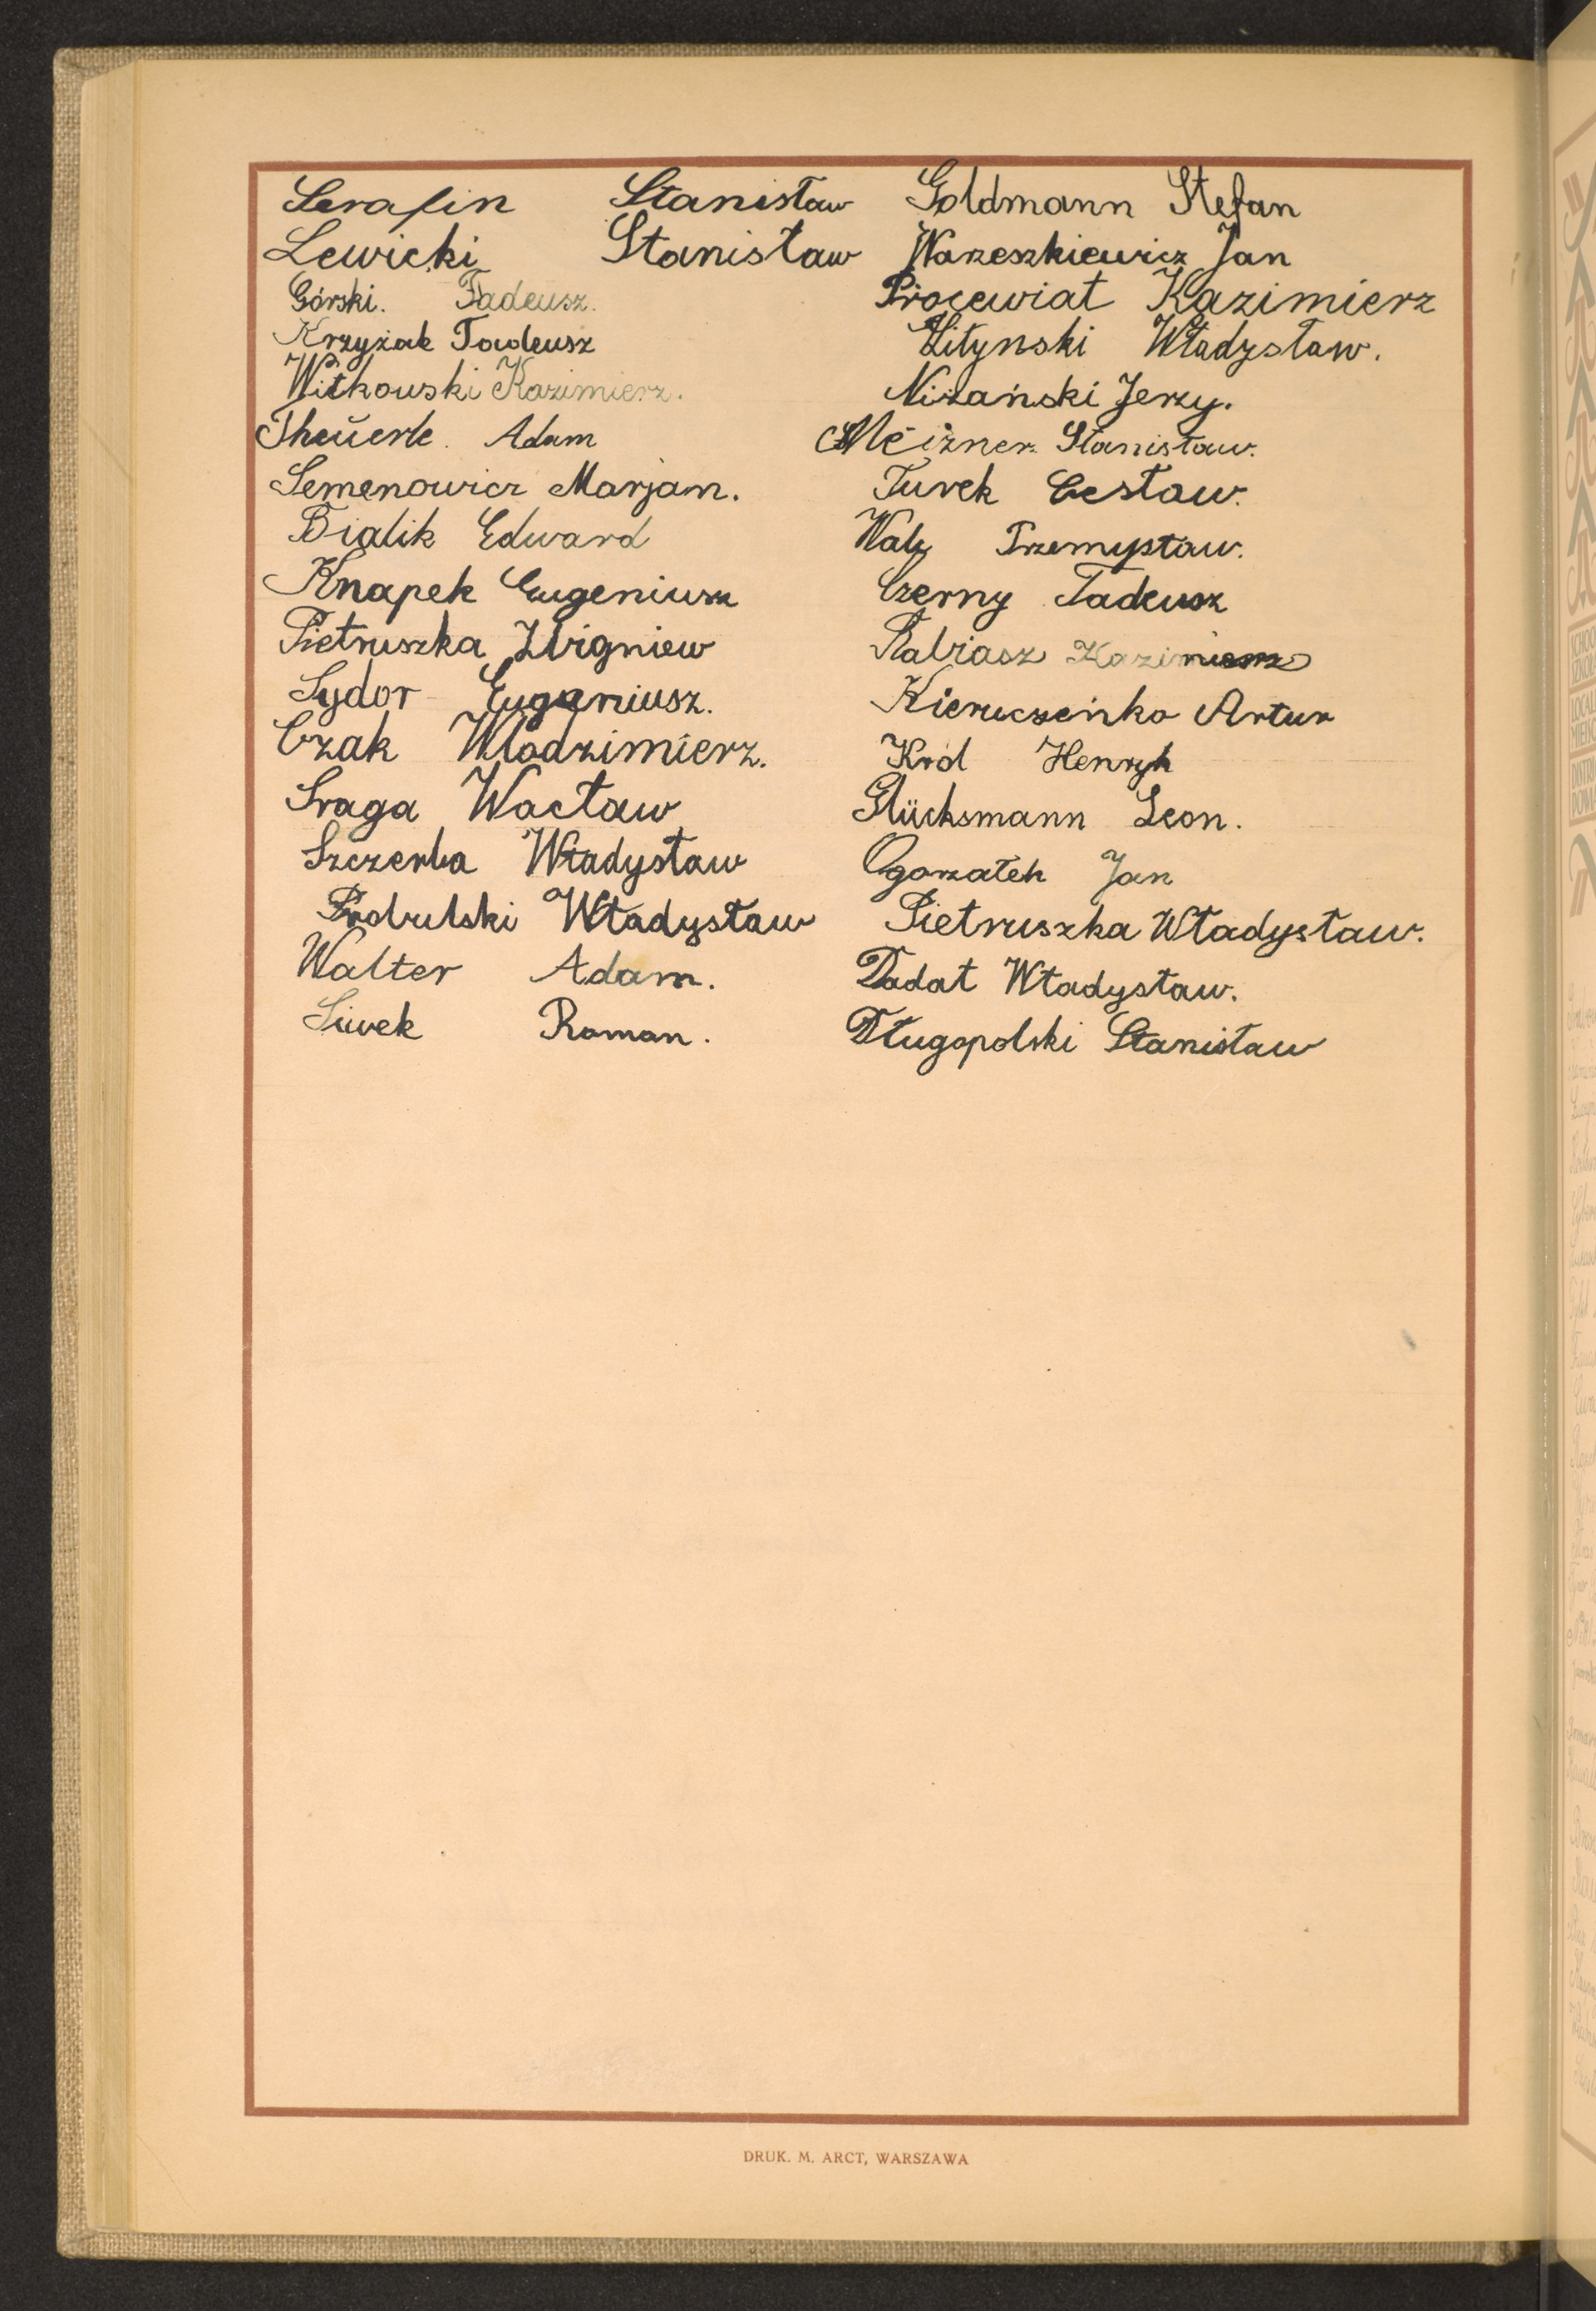 Serafin Stanisław
Lewicki Stanisław
Górski. Tadeusz.
Krzyżak Tadeusz
Witkowski Kazimierz.
Theuerle. Adam
Semenowicz Marjan.
Bialik Edward
Knapek Eugeniusz
Pietruszka Zbigniew
Sydor Eugeniusz.
Czak Włodzimierz.
Sraga Wacław
Szczerba Władysław
Probulski Władysław
Walter Adam.
Siwek Roman.
Goldmann Stefan
Warzeszkiewicz Jan
Procewiat Kazimierz
Żitynski Władysław.
Niżański Jerzy.
Meizner Stanisław.
Turek Czesław.
Walz Przemysław.
Czerny Tadeusz
Rabiasz Kazimierz
Kieruczeńko Artur
Król Henryk
Glücksmann Leon.
Ogorzałek Jan
Pietruszka Władysław.
Dadat Władysław.
Długopolski Stanisław
DRUK. M. ARCT, WARSZAWA